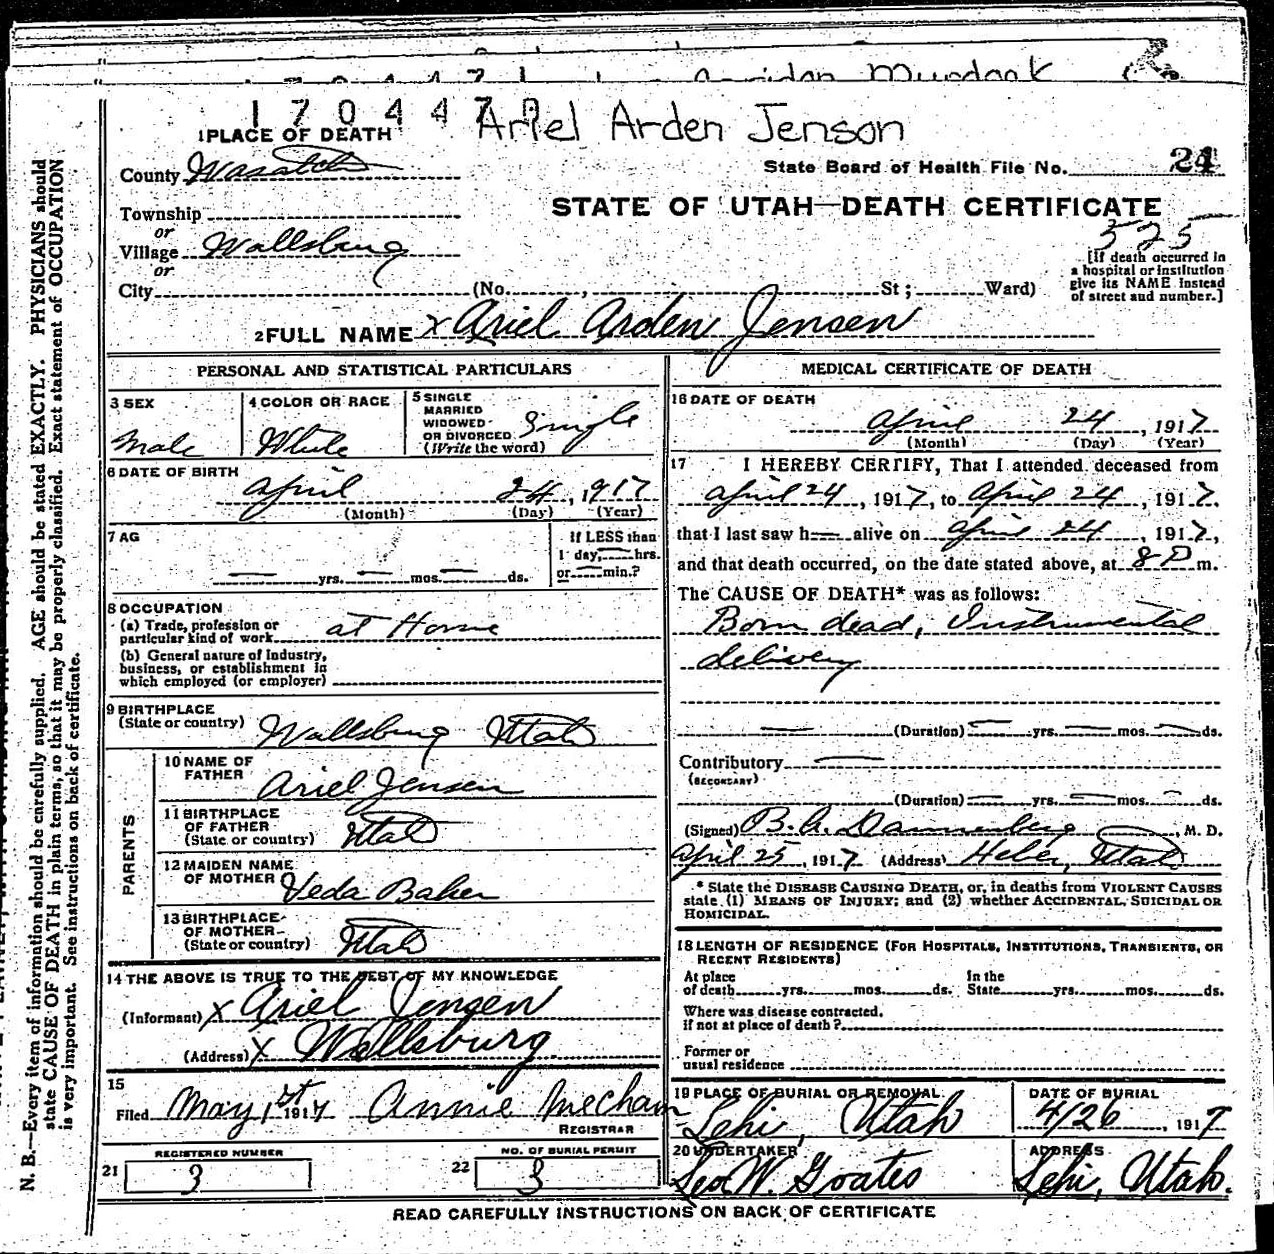 Murdock
170447
Ariel Arden Jenson
1 PLACE OF DEATH
State Board of Health File No. 24
County Wasatch
STATE OF UTAH—DEATH CERTIFICATE
Township
or
Village Wallsburg
525
or
[If death occurred in
a hospital or institution
give its NAME instead
of street and number.]
City (No. , St; Ward)
2 FULL NAME x Ariel Arden Jensen
PERSONAL AND STATISTICAL PARTICULARS
3 SEX
Male
4 COLOR OR RACE
White
5 SINGLE
MARRIED
WIDOWED
OR DIVORCED
(Write the word)
Single
6 DATE OF BIRTH
April 24, 1917
(Month) (Day) (Year)
7 AG
— yrs. — mos. — ds.
If LESS than
1 day, — hrs.
or — min.?
8 OCCUPATION
(a) Trade, profession or
particular kind of work at Home
(b) General nature of Industry,
business, or establishment in
which employed (or employer)
9 BIRTHPLACE
(State or country) Wallsburg Utah
PARENTS
10 NAME OF
FATHER Ariel Jensen
11 BIRTHPLACE
OF FATHER
(State or country) Utah
12 MAIDEN NAME
OF MOTHER Veda Baker
13 BIRTHPLACE
OF MOTHER
(State or country) Utah
14 THE ABOVE IS TRUE TO THE BEST OF MY KNOWLEDGE
(Informant) x Ariel Jensen
(Address) x Wallsburg
15
Filed May 1st 1917 Annie Mecham
REGISTRAR
REGISTERED NUMBER
21 3
NO. OF BURIAL PERMIT
22 3
MEDICAL CERTIFICATE OF DEATH
16 DATE OF DEATH
April 24, 1917
(Month) (Day) (Year)
17 I HEREBY CERTIFY, That I attended deceased from
April 24, 1917, to April 24, 1917,
that I last saw h— alive on April 24, 1917,
and that death occurred, on the date stated above, at 8 P m.
The CAUSE OF DEATH* was as follows:
Born dead, Instrumental
delivery
— (Duration) — yrs. — mos. — ds.
Contributory —
(SECONDARY)
(Duration) — yrs. — mos. — ds.
(Signed) B. A. Dannenberg, M. D.
April 25, 1917 (Address) Heber, Utah
* State the DISEASE CAUSING DEATH, or, in deaths from VIOLENT CAUSES
state (1) MEANS OF INJURY; and (2) whether ACCIDENTAL, SUICIDAL OR
HOMICIDAL.
18 LENGTH OF RESIDENCE (FOR HOSPITALS, INSTITUTIONS, TRANSIENTS, OR
RECENT RESIDENTS)
At place
of death yrs. mos. ds.
In the
State yrs. mos. ds.
Where was disease contracted,
if not at place of death?
Former or
usual residence
19 PLACE OF BURIAL OR REMOVAL
Lehi, Utah
DATE OF BURIAL
4/26, 1917
20 UNDERTAKER
Geo W. Goates
ADDRESS
Lehi, Utah.
READ CAREFULLY INSTRUCTIONS ON BACK OF CERTIFICATE
N. B.—Every item of information should be carefully supplied. AGE should be stated EXACTLY. PHYSICIANS should
state CAUSE OF DEATH in plain terms, so that it may be properly classified. Exact statement of OCCUPATION
is very important. See instructions on back of certificate.